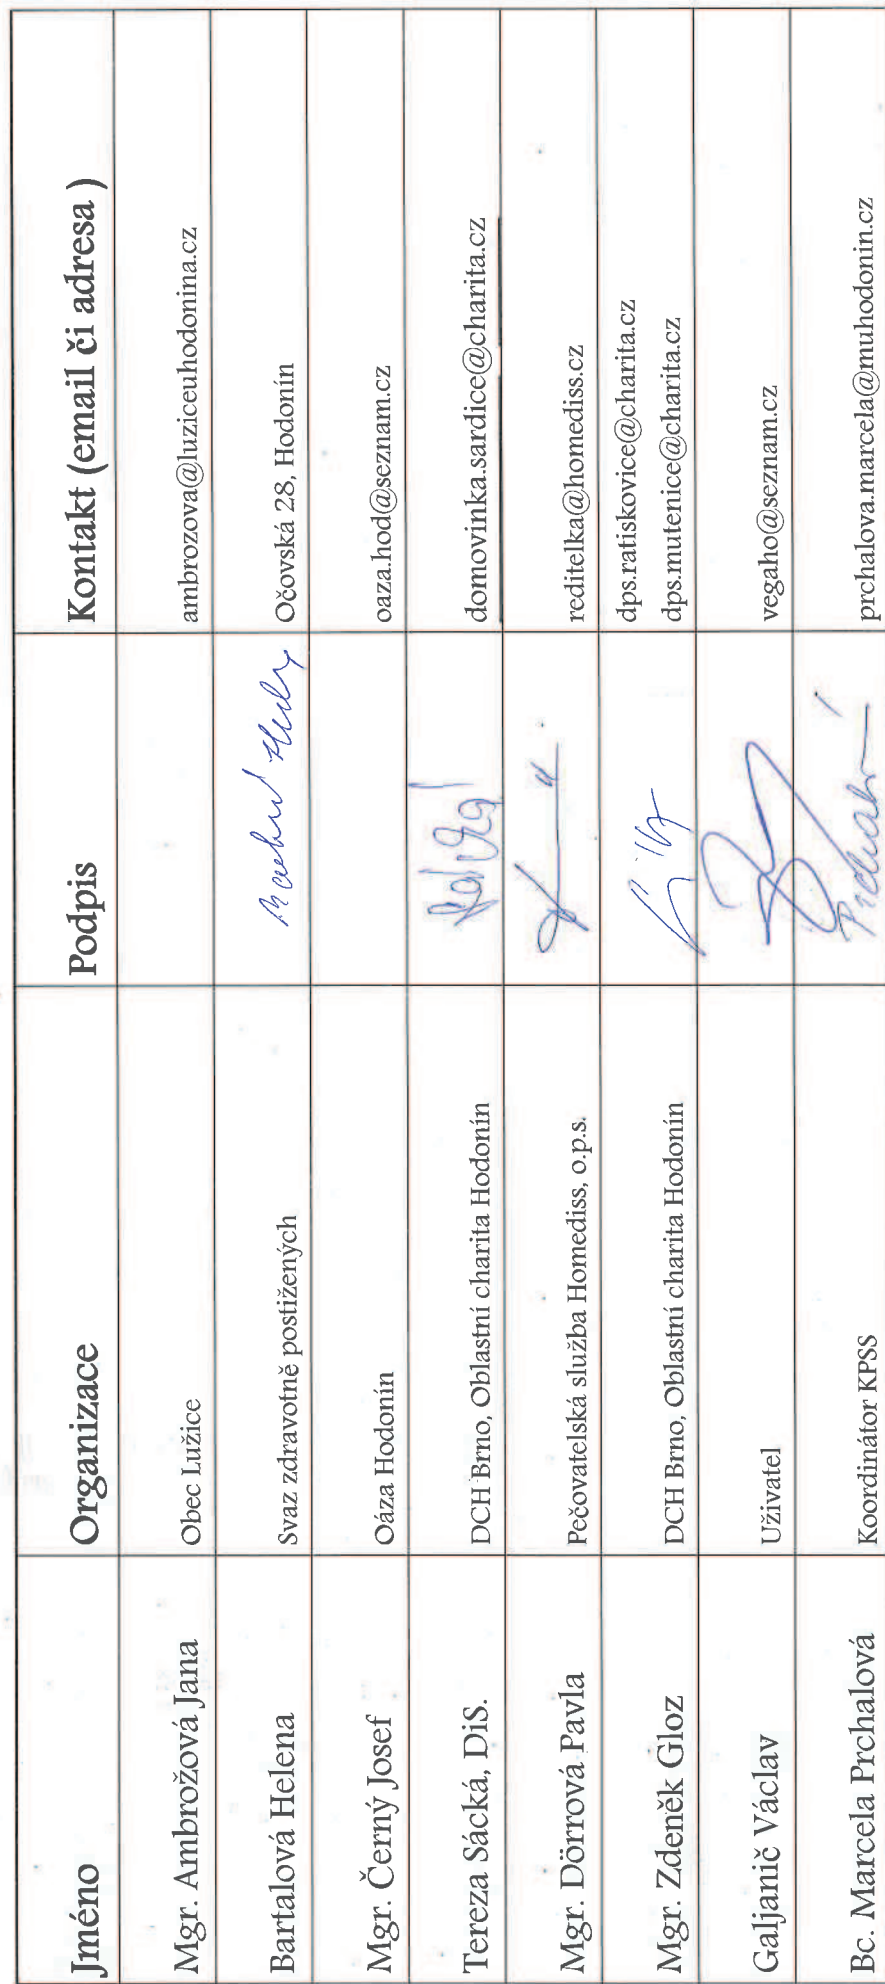 Jméno Organizace Podpis Kontakt (email či adresa )
Mgr. Ambrožová Jana Obec Lužice ambrozova@luziceuhodonina.cz
Bartalová Helena Svaz zdravotně postižených Očovská 28, Hodonín
Mgr. Černý Josef Oáza Hodonín oaza.hod@seznam.cz
Tereza Sácká, DiS. DCH Brno, Oblastní charita Hodonín domovinka.sardice@charita.cz
Mgr. Dörrová Pavla Pečovatelská služba Homediss, o.p.s. reditelka@homediss.cz
Mgr. Zdeněk Gloz DCH Brno, Oblastní charita Hodonín dps.ratiskovice@charita.cz
dps.mutenice@charita.cz
Galjanič Václav Uživatel vegaho@seznam.cz
Bc. Marcela Prchalová Koordinátor KPSS Prchalová prchalova.marcela@muhodonin.cz